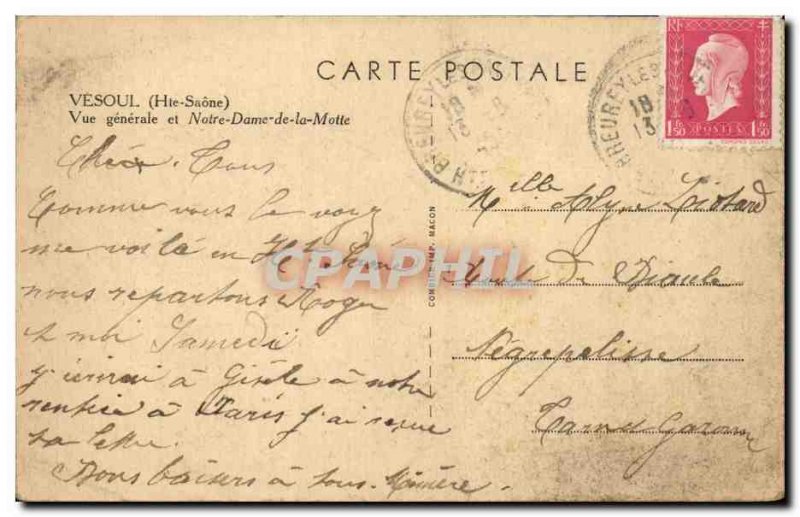 CARTE POSTALE
VESOUL (Hte-Saône)
Vue générale et Notre-Dame-de-la-Motte
Tous
Comme vous le voyez
me voilà en Hte Saône
nous repartons Roger
et moi Samedi
j'écrirai à Gisèle à notre
rentrée à Paris j'ai reçue
sa lettre.
Bons baisers à tous.
COMBIER IMP. MACON
Melle
de
Nègrepelisse
Tarn et Garonne
RF
1F50 POSTES 1F50
BREUREY LES
18
13
CPAPHIL